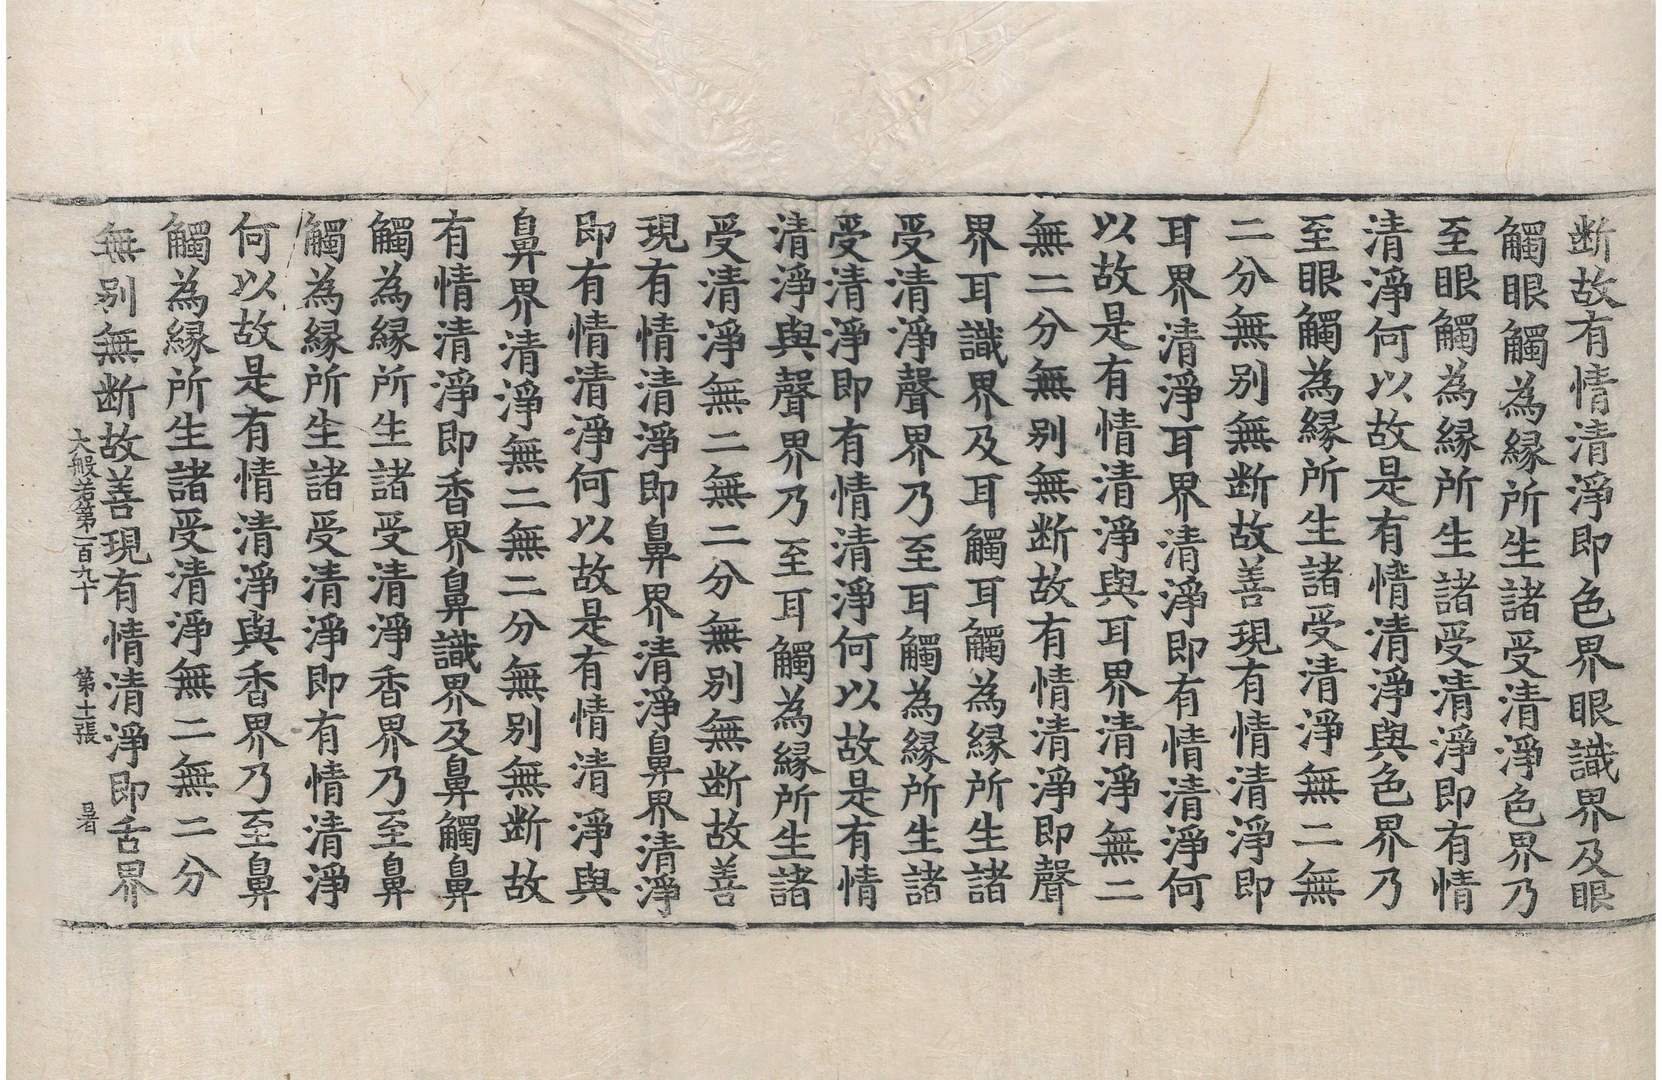 断故有情清淨即色界眼識界及眼
觸眼觸為緣所生諸受清淨色界乃
至眼觸為緣所生諸受清淨即有情
清淨何以故是有情清淨與色界乃
至眼觸為緣所生諸受清淨無二無
二分無別無断故善現有情清淨即
耳界清淨耳界清淨即有情清淨何
以故是有情清淨與耳界清淨無二
無二分無別無断故有情清淨即聲
界耳識界及耳觸耳觸為緣所生諸
受清淨聲界乃至耳觸為緣所生諸
受清淨即有情清淨何以故是有情
清淨與聲界乃至耳觸為緣所生諸
受清淨無二無二分無別無断故善
現有情清淨即鼻界清淨鼻界清淨
即有情清淨何以故是有情清淨與
鼻界清淨無二無二分無別無断故
有情清淨即香界鼻識界及鼻觸鼻
觸為緣所生諸受清淨香界乃至鼻
觸為緣所生諸受清淨即有情清淨
何以故是有情清淨與香界乃至鼻
觸為緣所生諸受清淨無二無二分
無別無断故善現有情清淨即舌界
大般若第一百九十 第十二張